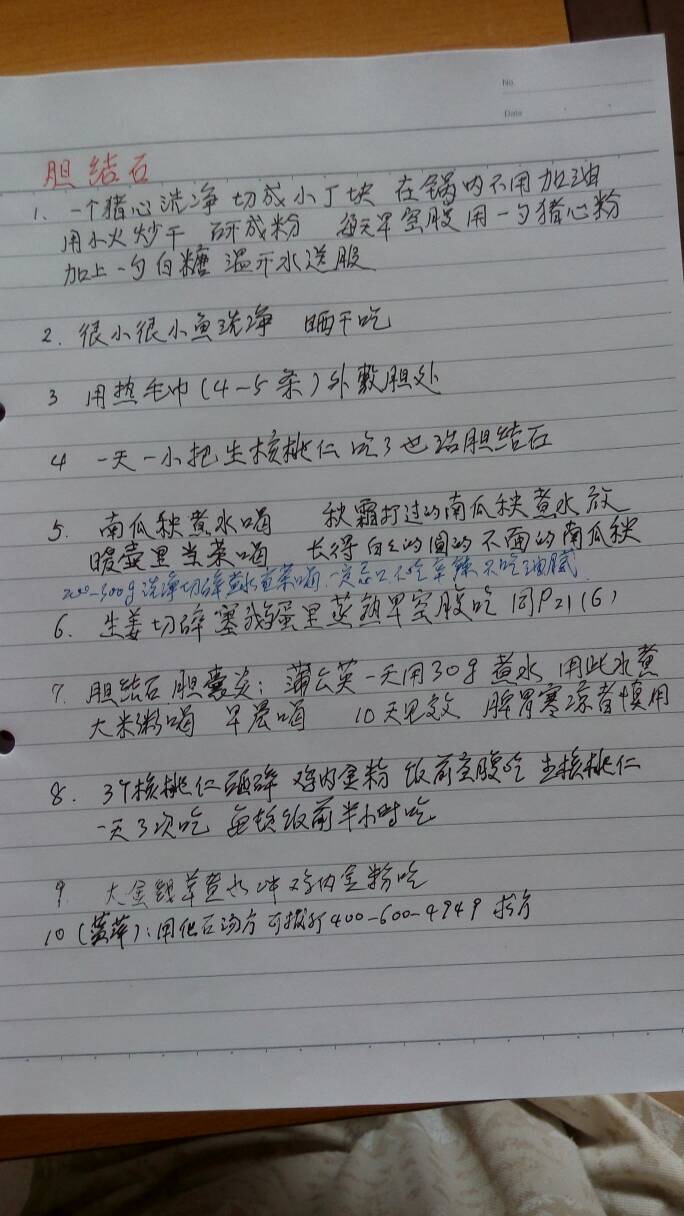 No.
Date
胆结石
1、一个猪心洗净 切成小丁块 在锅内不用加油
用小火炒干 研成粉 每天早空服用一勺猪心粉
加上一勺白糖 温开水送服
2. 很小很小鱼洗净 晒干吃
3 用热毛巾(4-5条)外敷胆处
4 一天一小把生核桃仁 吃了也治胆结石
5. 南瓜秧煮水喝 秋霜打过的南瓜秧煮水放
暖壶里当茶喝 长得白的圆的不面的南瓜秧
200-300g洗净切碎煮水当茶喝.一定忌口不吃辛辣不吃油腻
6. 生姜切碎塞鹅蛋里蒸熟早空服吃 同P21(6)
7. 胆结石 胆囊炎:蒲公英一天用30g煮水 用此水煮
大米粥喝 早晨喝 10天见效 脾胃寒凉者慎用
8. 3个核桃仁砸碎 鸡内金粉 饭前空腹吃 生核桃仁
一天3次吃 每顿饭前半小时吃
9. 大金钱草煮水冲鸡内金粉吃
10 ( ):用化石汤方 可拨打400-600-4949 求方